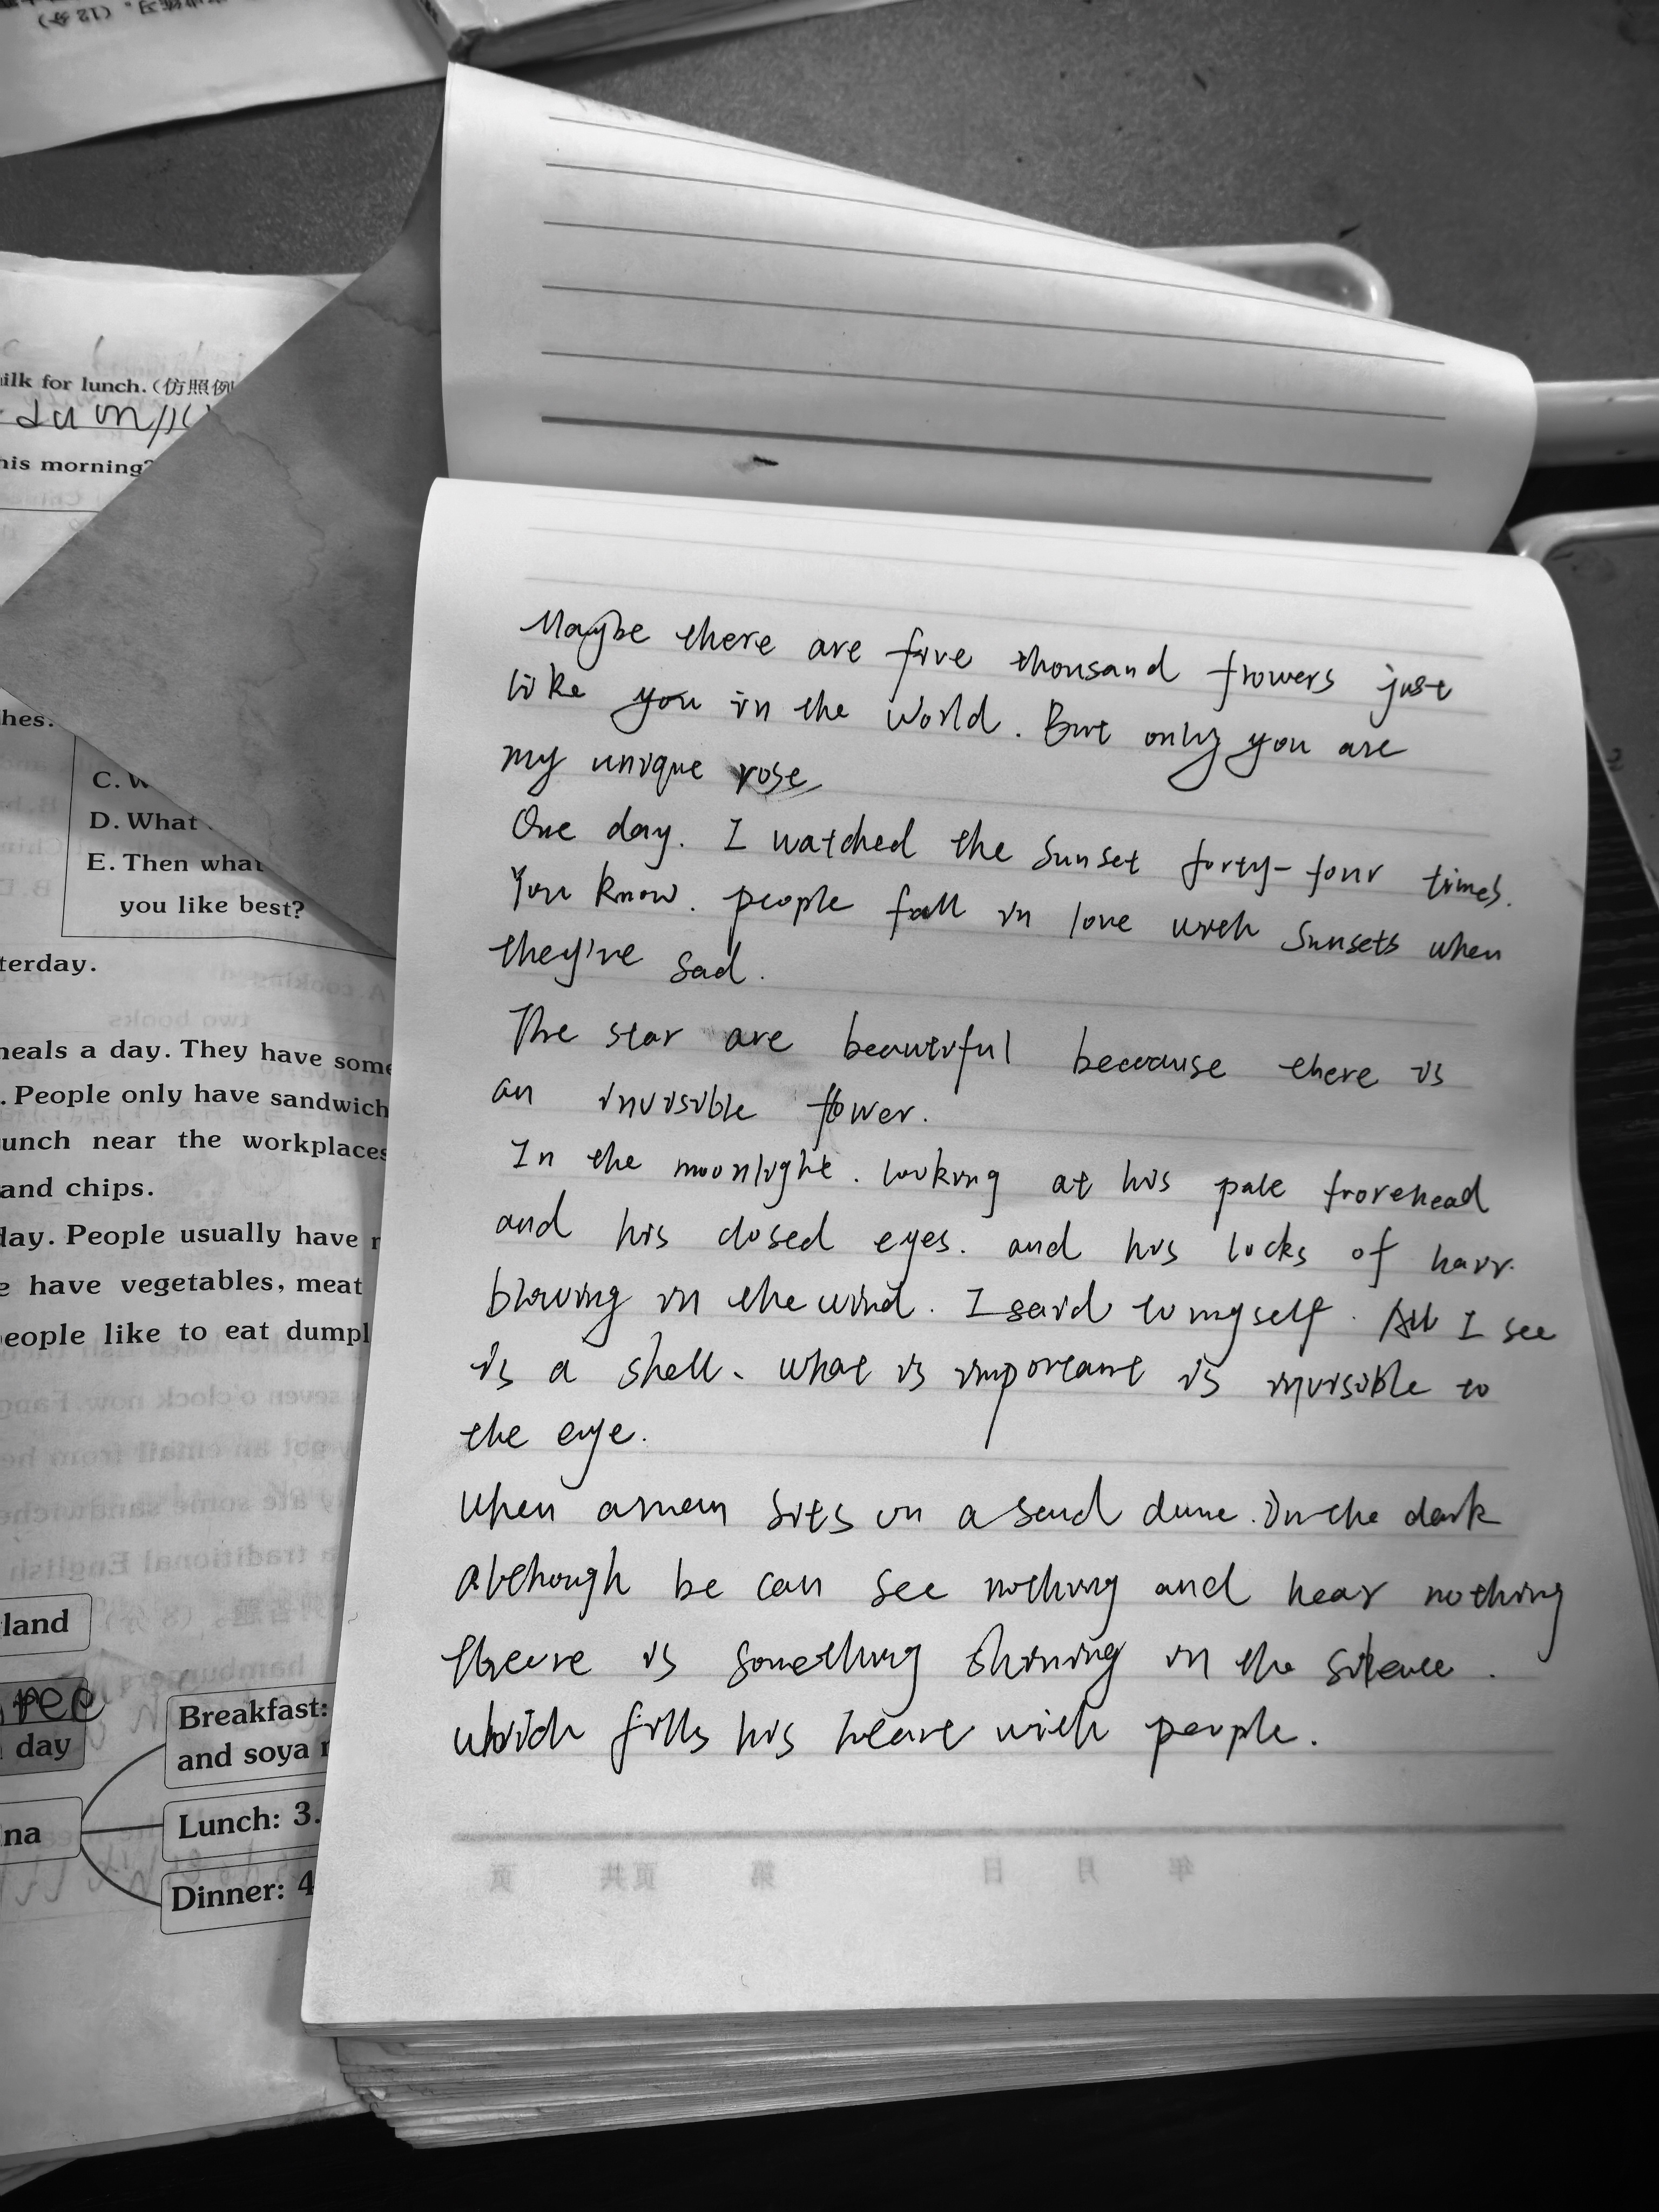 习。(12分)
ilk for lunch.(仿照例
his morning?
hes.
C. W
D. What
E. Then what
you like best?
terday.
neals a day. They have some
. People only have sandwich
unch near the workplaces
and chips.
day. People usually have r
e have vegetables, meat
people like to eat dumpl
land
ree
day
na
Breakfast:
and soya r
Lunch: 3.
Dinner: 4
Maybe there are five thousand flowers just
like you in the world. But only you are
my unique rose
One day. I watched the sunset forty-four times.
You know. people fall in love with sunsets when
they're sad.
The star are beautiful because there is
an invisible flower.
In the moonlight. looking at his pale frorehead
and his closed eyes. and his locks of hair.
blowing in the wind. I said to myself. All I see
is a shell. what is important is invisible to
the eye.
when aman sits on a sand dune. In the dark
although be can see nothing and hear nothing
there is something shining in the silence.
which fills his heart with people.
年 月 日 第 页共 页